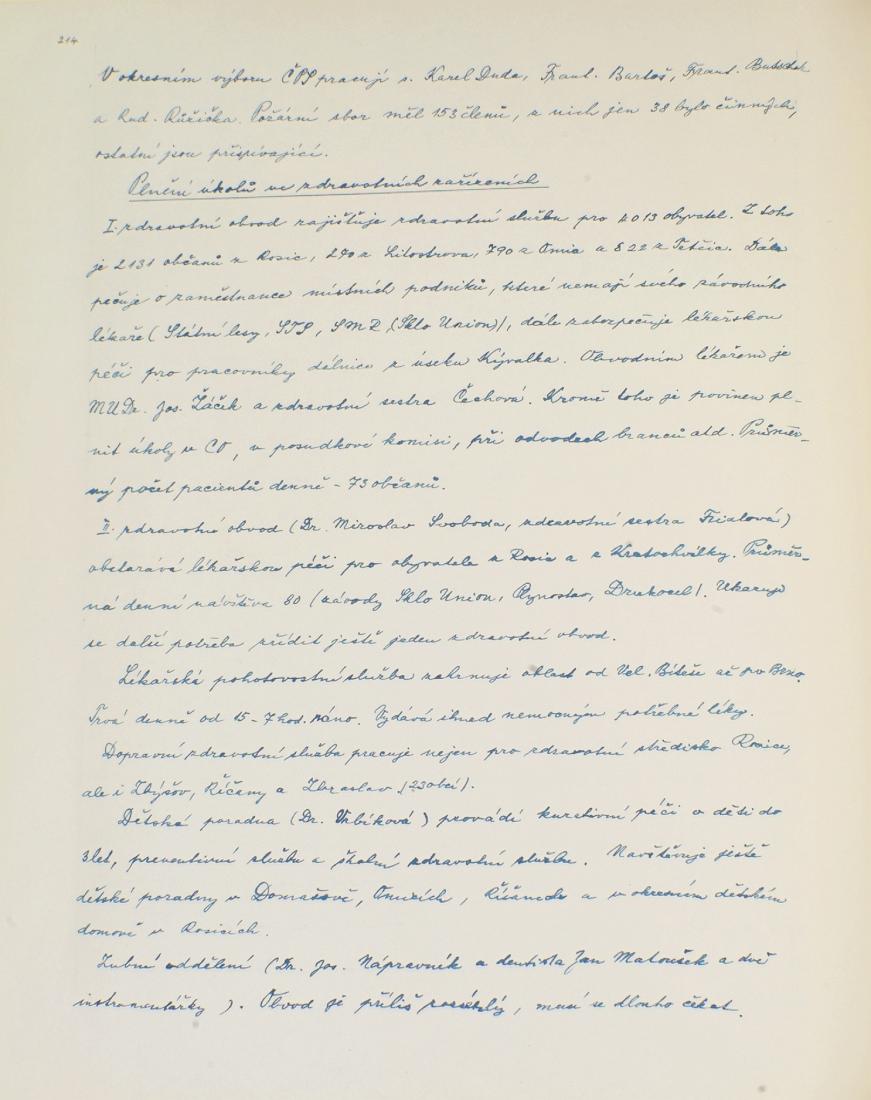 214
V okresním výboru ČPS pracují s. Karel Duda, Frant. Bartoš, Frant.
a Rud. Růžička. Požární sbor měl 153 členů, z nich jen 38 bylo činných,
ostatní jsou přispívající.
Plnění úkolů ve zdravotních zařízeních
I. zdravotní obvod zajišťuje zdravotní službu pro 4013 obyvatel. Z toho
je 2131 občanů z Rosic, 270 z Litostrova, 790 z Omic a 822 z Tetčic. Dále
pečuje o zaměstnance místních podniků, které nemají svého závodního
lékaře (Státní lesy, STS, SMZ, (Sklo Union)), dále zabezpečuje lékařskou
péči pro pracovníky dálnice z úseku Kývalka. Obvodním lékařem je
MUDr. Jos. Žáček a zdravotní sestra Čechová. Kromě toho je povinen pl-
nit úkoly v CO, v posudkové komisi, při odvodech branců atd. Průměr-
ný počet pacientů denně - 73 občanů.
II. zdravotní obvod (Dr. Miroslav Svoboda, zdravotní sestra Fialová)
obstarává lékařskou péči pro obyvatele z Rosic a z Kratochvilky. Průměr-
ná denní návštěva 80 (závody Sklo Union, Rynostav, Drukocel). Ukazuje
se další potřeba zřídit ještě jeden zdravotní obvod.
Lékařská pohotovostní služba zahrnuje oblast od Vel. Bíteše až po Brno.
Trvá denně od 15 - 7 hod. ráno. Vydává ihned nemocným potřebné léky.
Dopravní zdravotní služba pracuje nejen pro zdravotní středisko Rosice,
ale i Zbýšov, Říčany a Zbraslav (23 obcí).
Dětská poradna (Dr. Vrbíková) provádí kurativní péči o děti do
3 let, preventivní službu a školní zdravotní službu. Navštěvuje ještě
dětské poradny v Domašově, Omicích, Říčanech a v okresním dětském
domově v Rosicích.
Zubní oddělení (Dr. Jos. Nápravník a dentista Jan Matoušek a dvě
instrumentářky). Obvod je příliš rozsáhlý, musí se dlouho čekat.